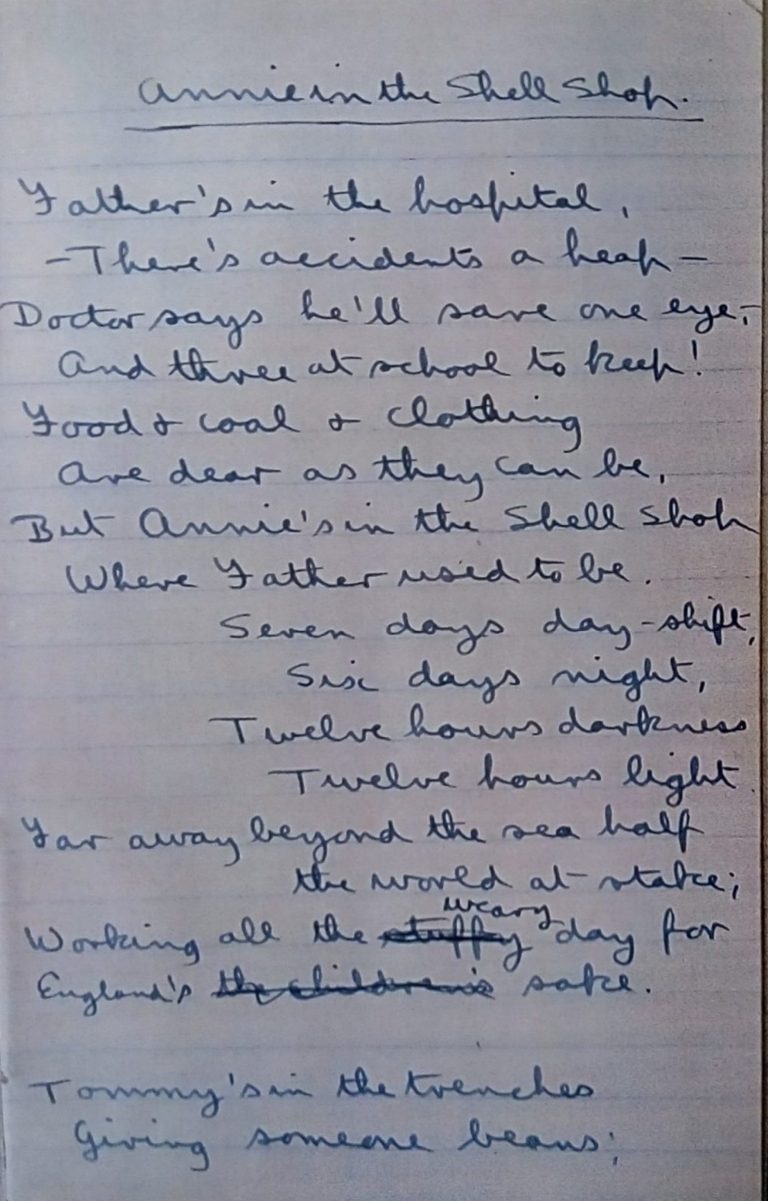 Annie in the Shell Shop.
Father's in the hospital,
- There's accidents a heap -
Doctor says he'll save one eye; -
And three at school to keep!
Food & coal & clothing
Are dear as they can be,
But Annie's in the Shell Shop
Where Father used to be.
Seven days day-shift,
Six days night,
Twelve hours darkness
Twelve hours light.
Far away beyond the sea half
the world at stake;
weary
Working all the stuffy day for
England's the children's sake.
Tommy's in the trenches
Giving someone beans;